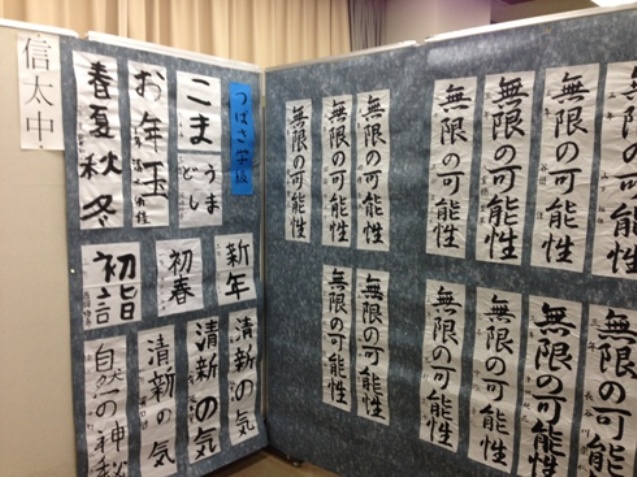 信太中
つばさ学級
こま
うまどし
お年玉
春夏秋冬
新年
初春
初詣
清新の気
清新の気
清新の気
自然の神秘
無限の可能性
無限の可能性
無限の可能性
無限の可能性
無限の可能性
無限の可能性
無限の可能性
無限の可能性
無限の可能性
無限の可能性
無限の可能性
無限の可能性
無限の可能性
三年 長谷川